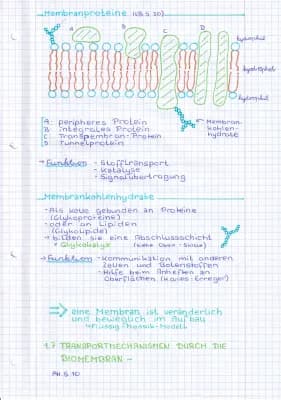 Membranproteine (AB S.20)
A B C D hydrophil
hydrophob
hydrophil
Membran-
kohlen-
hydrate
A: peripheres Protein
B: Integrales Protein
C: Transmembran-Protein
D: Tunnelprotein
→ Funktion - Stofftransport
- Katalyse
- Signalübertragung
Membrankohlenhydrate
- Als Kette gebunden an Proteine
(Glykoproteine)
- oder an Lipiden
(Glykolipide)
→ bilden sie eine Abschlussschicht
Glykokalyx
→ Funktion - Kommunikation mit anderen
Zellen und Botenstoffen
- Hilfe beim Anheften an
Oberflächen (Karies-Erreger)
⇒ eine Membran ist veränderlich
und beweglich im Aufbau
Flüssig-Mosaik-Modell
1.7 TRANSPORTMECHANISMEN DURCH DIE
BIOMEMBRAN -
AH S.10